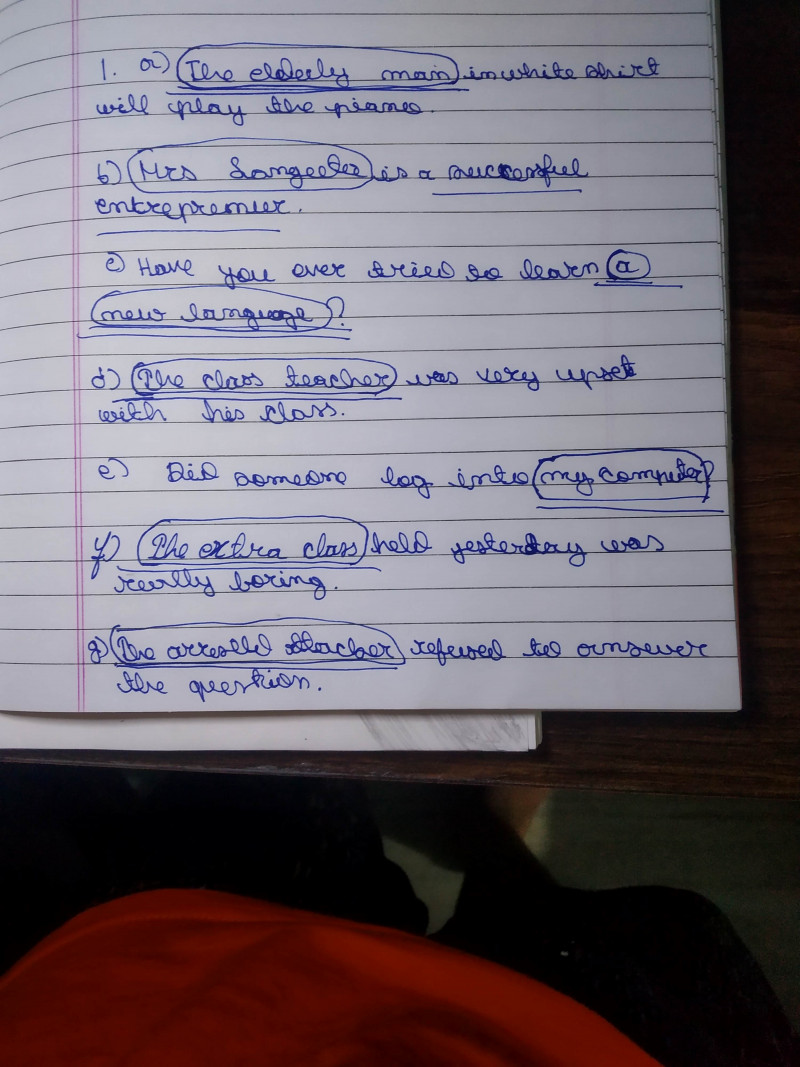 1. a) The elderly man in white shirt
will play the piano.
b) Mrs Sangeeta is a successful
entreprenuer.
c) Have you ever tried to learn a
new language?
d) The class teacher was very upset
with his class.
e) Did someone log into my computer?
f) The extra class held yesterday was
really boring.
g) The arrested attacker refused to answer
the question.